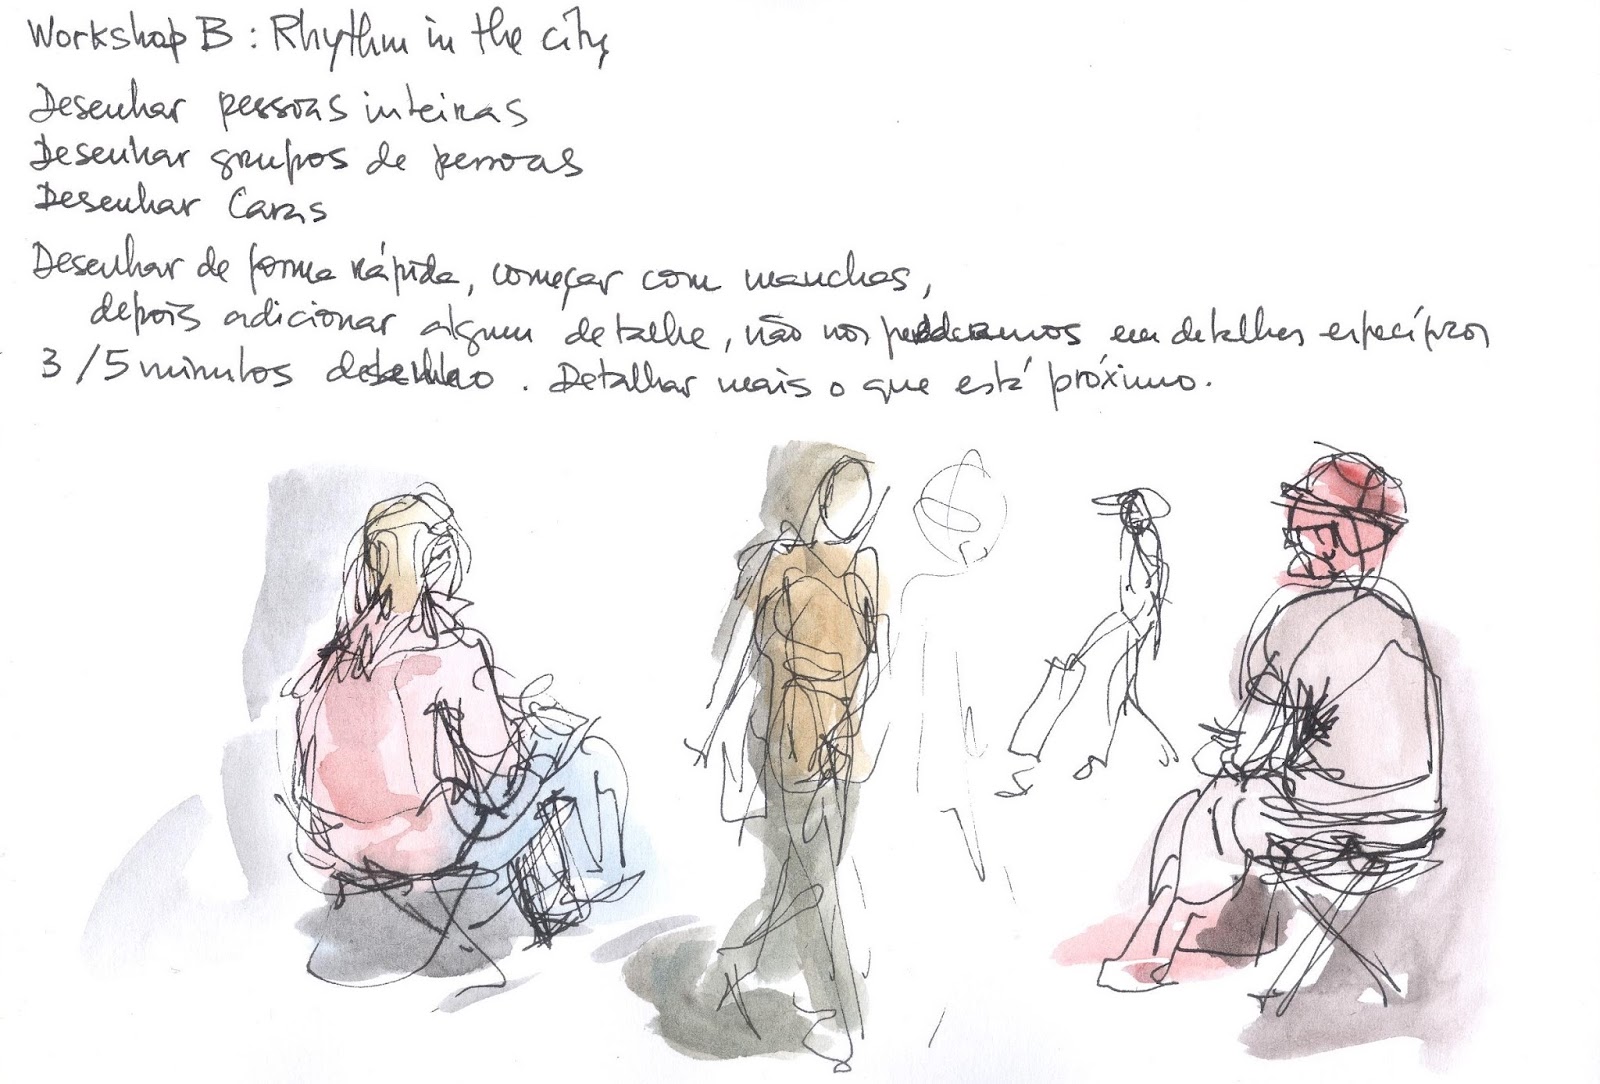 Workshop B : Rhythm in the city
Desenhar pessoas inteiras
Desenhar grupos de pessoas
Desenhar Caras
Desenhar de forma rápida, começar com manchas,
depois adicionar algum detalhe, não nos perdermos em detalhes específicos
3 /5 minutos desenho . Detalhar mais o que está próximo.